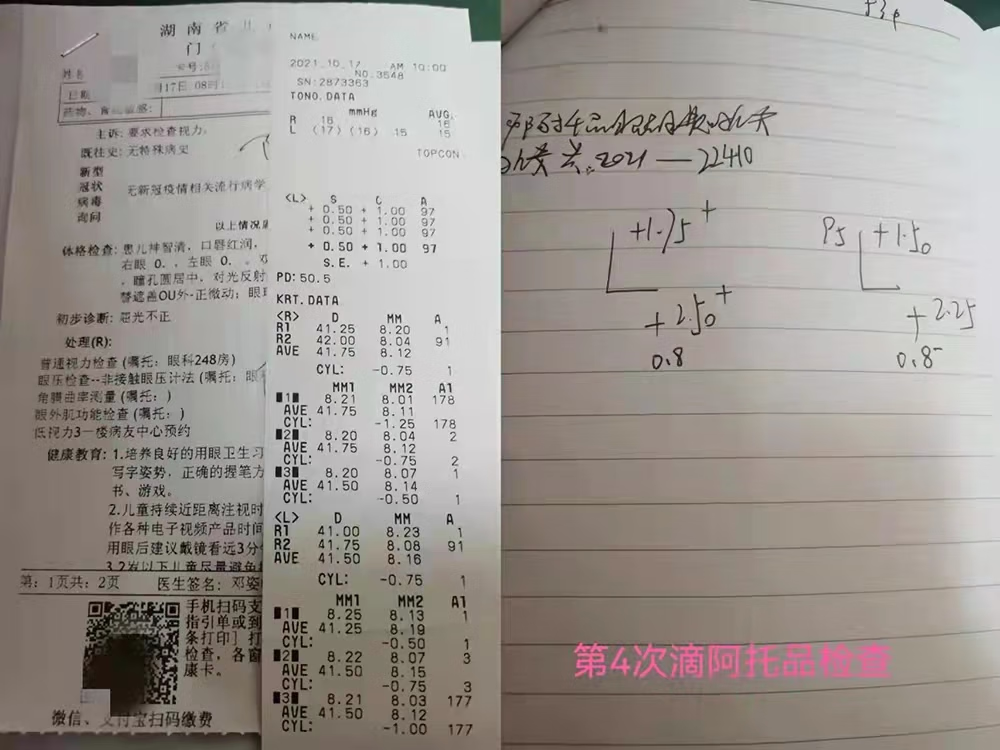 湖南省儿
门
卡号:
姓名
日期
月17日 08时
药物、食
主诉: 要求检查视力。
既往史: 无特殊病史
新型
冠状
病毒
询问
无新冠疫情相关流行病学
以上情况属
体格检查: 患儿神智清, 口唇红润,
右眼 0. 、左眼 0. 。
, 瞳孔圆居中, 对光反射
替遮盖OU外-正微动; 眼
初步诊断: 屈光不正
处理(R):
普通视力检查 (嘱托: 眼科248房)
眼压检查--非接触眼压计法 (嘱托: 眼
角膜曲率测量 (嘱托: )
眼外肌功能检查 (嘱托: )
低视力3一楼病友中心预约
健康教育: 1.培养良好的用眼卫生习
写字姿势, 正确的握笔方
书、游戏。
2.儿童持续近距离注视时
作各种电子视频产品时间
用眼后建议戴镜看远3分
3.2岁以下儿童尽量避免
第: 1页共: 2页
医生签名: 邓姿
手机扫码支
指引单或到
条打印] 打
检查, 各窗
康卡。
微信、支付宝扫码缴费
NAME
2021.10.17 AM 10:00
NO.3548
SN:2873363
TONO.DATA
mmHg AVG.
R 16 16
L (17) (16) 15 15
TOPCON
<L> S C A
+ 0.50 + 1.00 97
+ 0.50 + 1.00 97
+ 0.50 + 1.00 97
+ 0.50 + 1.00 97
S.E. + 1.00
PD: 50.5
KRT.DATA
<R> D MM A
R1 41.25 8.20 1
R2 42.00 8.04 91
AVE 41.75 8.12
CYL: -0.75 1
MM1 MM2 A1
1 8.21 8.01 178
AVE 41.75 8.11
CYL: -1.25 178
2 8.20 8.04 2
AVE 41.75 8.12
CYL: -0.75 2
3 8.20 8.07 1
AVE 41.50 8.14
CYL: -0.50 1
<L> D MM A
R1 41.00 8.23 1
R2 41.75 8.08 91
AVE 41.50 8.16
CYL: -0.75 1
MM1 MM2 A1
1 8.25 8.13 1
AVE 41.25 8.19
CYL: -0.50 1
2 8.22 8.07 3
AVE 41.50 8.15
CYL: -0.75 3
3 8.21 8.03 177
AVE 41.50 8.12
CYL: -1.00 177
2021—22410
+1.75+
+2.50+
0.8
+1.50
+2.25
0.8-
第4次滴阿托品检查